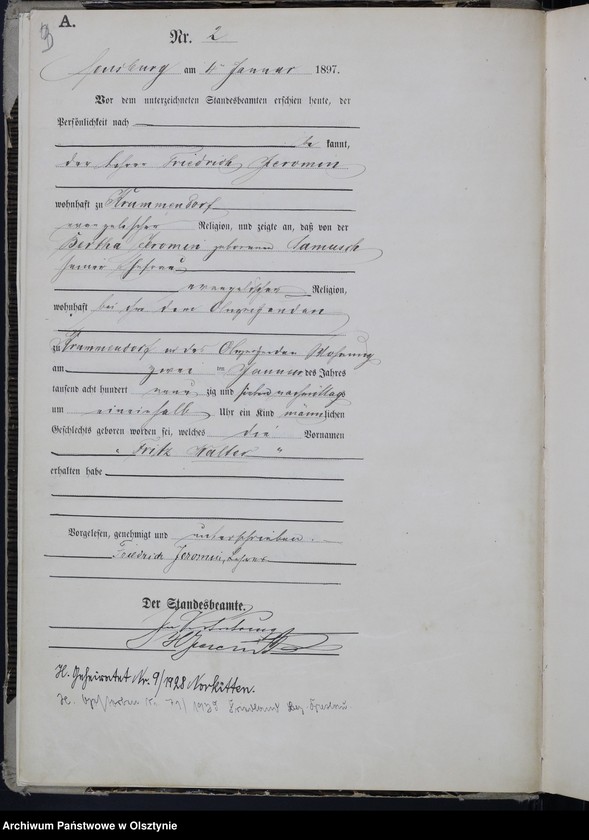 A.
Nr. 2
Sensburg am 4 Januar 1897.
Vor dem unterzeichneten Standesbeamten erschien heute, der
Persönlichkeit nach
be kannt,
der Lehrer Friedrich Jeromin
wohnhaft zu Krummendorf
evangelischer Religion, und zeigte an, daß von der
Bertha Jeromin geborenen
seiner Ehefrau
evangelischer Religion,
wohnhaft bei
zu Krummendorf in des Wohnung
am zwei ten Januar des Jahres
tausend acht hundert neun zig und sieben nachmittags
um eineinhalb Uhr ein Kind männlichen
Geschlechts geboren worden sei, welches die Vornamen
" Fritz Walter "
erhalten habe
Vorgelesen, genehmigt und unterschrieben.
Friedrich Jeromin, Lehrer
Der Standesbeamte.
In Vertretung
H. Geheiratet Nr. 9/1928 Norkitten.
Archiwum Państwowe w Olsztynie